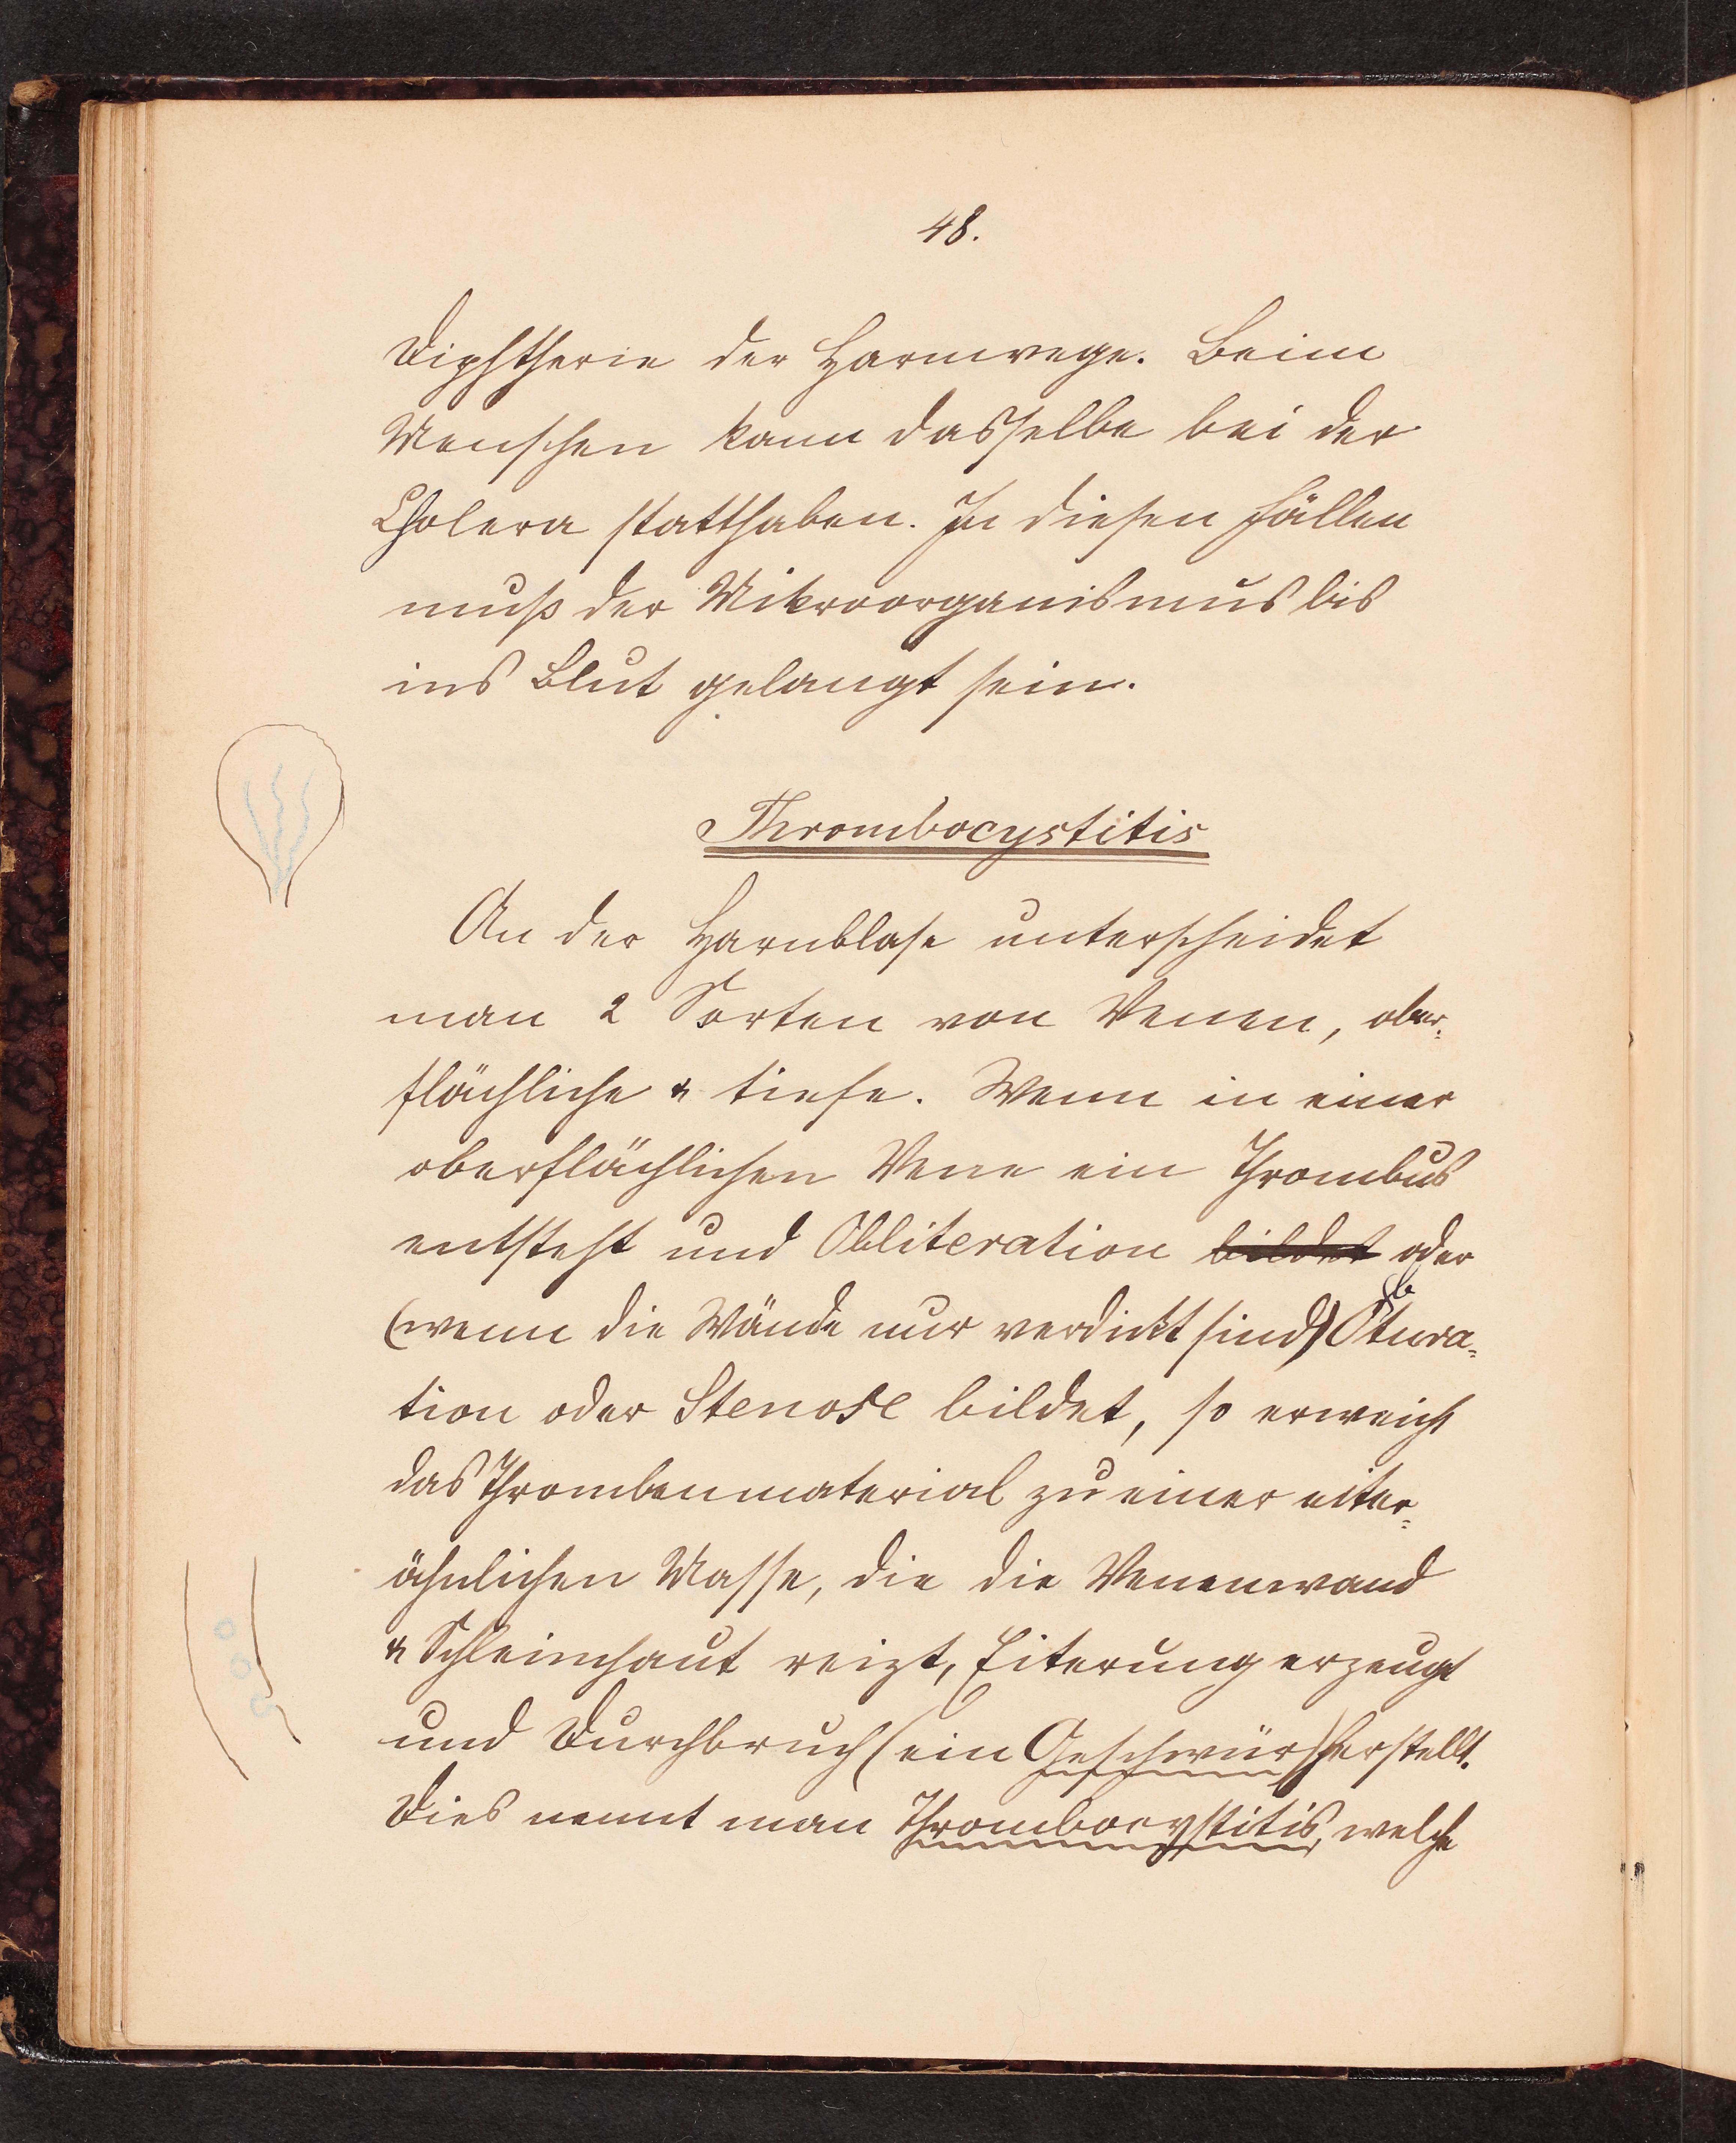 48.
Diphtherie der Harnwege. Beim
Menschen kann dasselbe bei der
Cholera statthaben. In diesen Fällen
muß der Mikroorganismus bis
ins Blut gelangt sein.
Thrombocystitis
An der Harnblase unterscheidet
man 2 Sorten von Venen, ober=
flächliche & tiefe. Wenn in einer
oberflächlichen Vene ein Thrombus
entsteht und Obliteration bildet oder
(wenn die Wände nur verdickt sind) Obtura=
tion oder Stenose bildet, so erweicht
das Thrombenmaterial zu einer eiter=
ähnlichen Masse, die die Venenwand
& Schleimhaut reizt, Eiterung erzeugt
und Durchbruch (ein Geschwür) herstellt.
Dies nennt man Thrombocystitis, welche